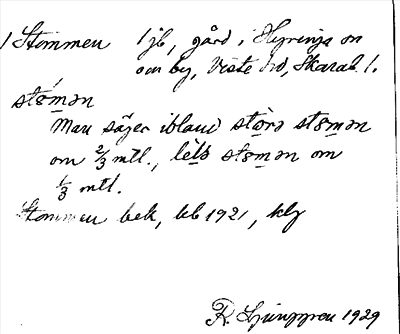 1 Stommen 1 jb, gård i Hyringa sn
och by, Viste hd, Skarab. l.
stómən
Man säjer ibland stòra stomən
om 2/3 mtl., lèla stomən om
1/3 mtl.
Stommen bek, kb 1921, klg
R. Ljunggren 1929